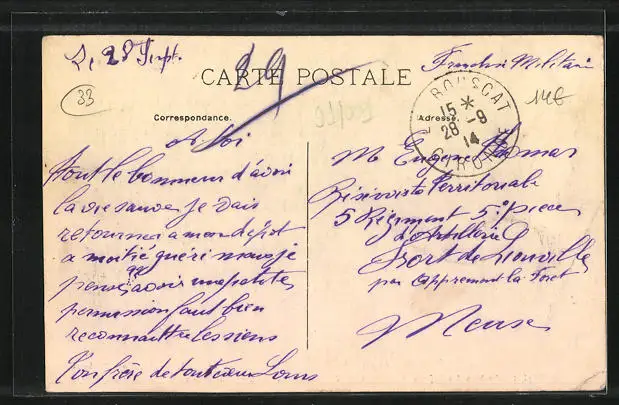 Le 28 Sept.
29
Franchise Militaire
CARTE POSTALE
33
14€
Correspondance.
Adresse.
LE BOUSCAT
15 * 28 -9 14
GIRONDE
A toi
tout le bonheur d'avoir
la vie sauve je vais
retourner a mon depot
a moitié guéri mais je
pense avoir une petite
permission faut bien
reconnaitre les siens
Ton frère de tout cœur Louis
M Eugene
Réserviste Territoriale
5 Régiment 5e piece
d'Artillerie
Fort de Liouville
par Appremont la Foret
Meuse